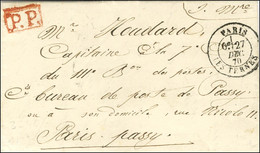 P.P.
Mr Heudard
PARIS
6E 27
DEC.
70
LES TERNES
Capitaine à la 7e
du Mme Bon des postes,
bureau de poste de Passy
ou à son domicile rue Nicolo 11.
Paris-passy